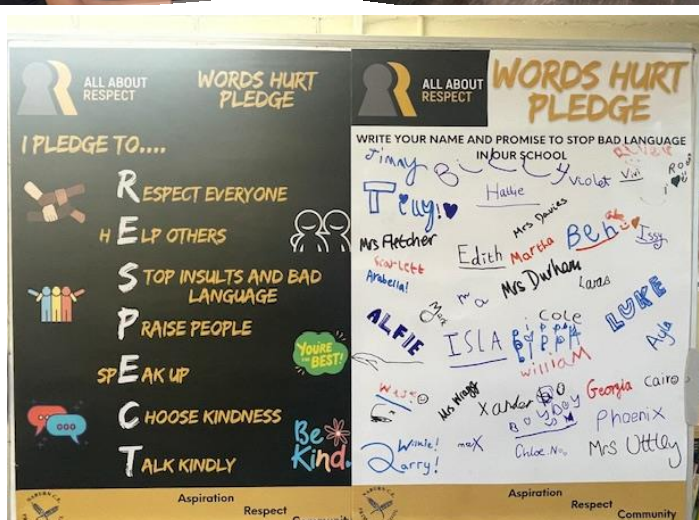 ALL ABOUT
RESPECT
WORDS HURT
PLEDGE
I PLEDGE TO....
RESPECT EVERYONE
HELP OTHERS
STOP INSULTS AND BAD
LANGUAGE
PRAISE PEOPLE
SPEAK UP
CHOOSE KINDNESS
TALK KINDLY
YOU'RE
THE
BEST!
Be
Kind.
Aspiration
Respect
Community
ALL ABOUT
RESPECT
WORDS HURT
PLEDGE
WRITE YOUR NAME AND PROMISE TO STOP BAD LANGUAGE
IN OUR SCHOOL
Jimmy
Billy
Violet
Vivi
Hallie
Tilly!
Mrs Davies
Mrs Fletcher
Edith
Martha
Ben
Issy
Scarlett
Arabella!
Mrs Durham
Laras
Mark
ma
ALFIE
ISLA
Cole
PIPPA
LUKE
Ayla
william
Mrs Wragg
Xander
Georgia
Cairo
BOYDBOY
Phoenix
Larry!
max
Chloe.Na
Mrs Uttley
Aspiration
Respect
Community